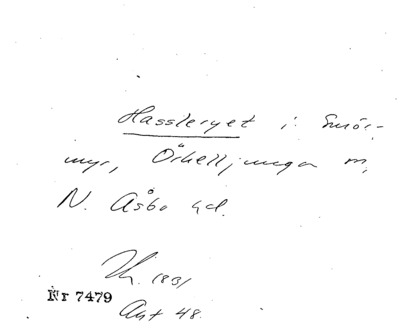 Hassleryet i Smör-
myr, Örkelljunga m,
N. Åsbo hd.
1831
Nr 7479
Akt 48.